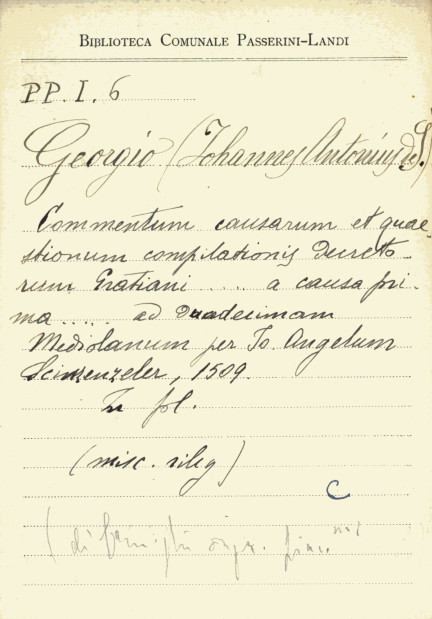 BIBLIOTECA COMUNALE PASSERINI-LANDI
PP. I. 6
Georgio (Johannes Antonius de S.)
Commentum causarum et quae
stionum compilationis Decreto-
rum Gratiani .... a causa pri-
ma ..... ad duadecimam
Mediolanum per Jo. Angelum
Scinzenzeler, 1509.
In fol.
(misc. rileg)
C
(di